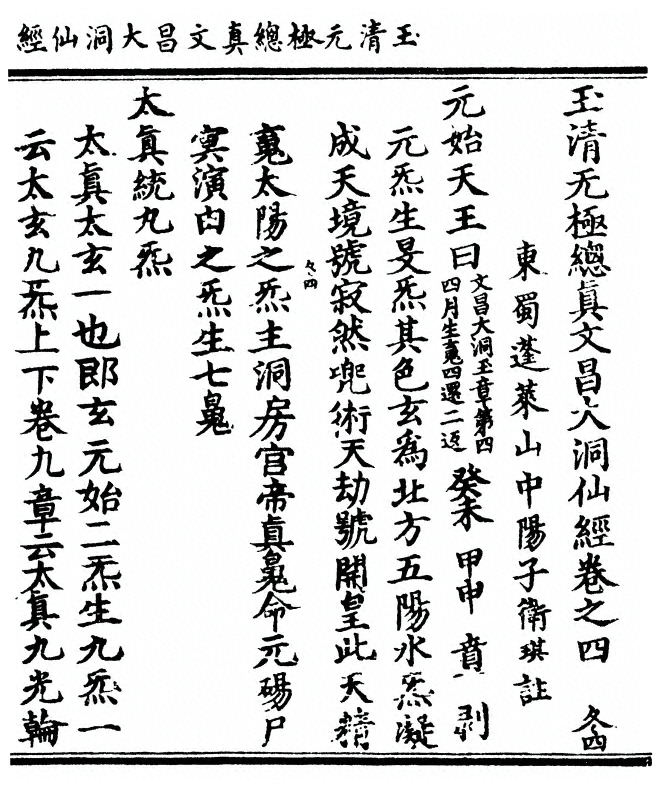 玉清元極緫真文昌大洞仙經
玉清无極緫眞文昌大洞仙經卷之四 冬四
東蜀蓬萊山中陽子衛琪註
元始天王曰 文昌大洞玉章第四 四月生䰟四還二返 癸未 甲申 賁 剥
元炁生旻炁其色玄為北方五陽水炁凝
成天境號寂然兜術天劫號開皇此天精
冬四
䰟太陽之炁主洞房宫帝眞䰟命元碭尸
㝠演内之炁生七䰟
太眞統九炁
太眞太玄一也即玄元始二炁生九炁一
云太玄九炁上下卷九章云太真九光輪